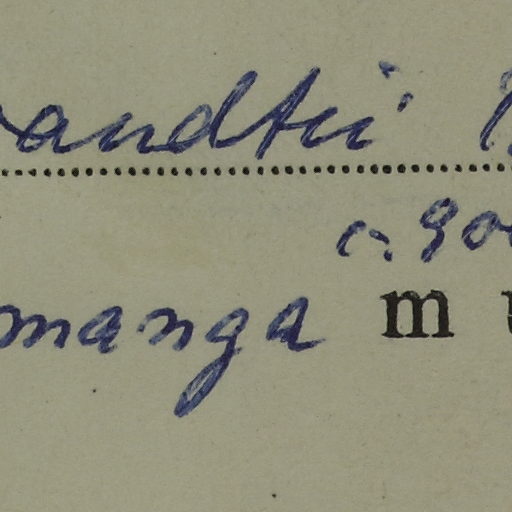 andtii
c. 900
manga m